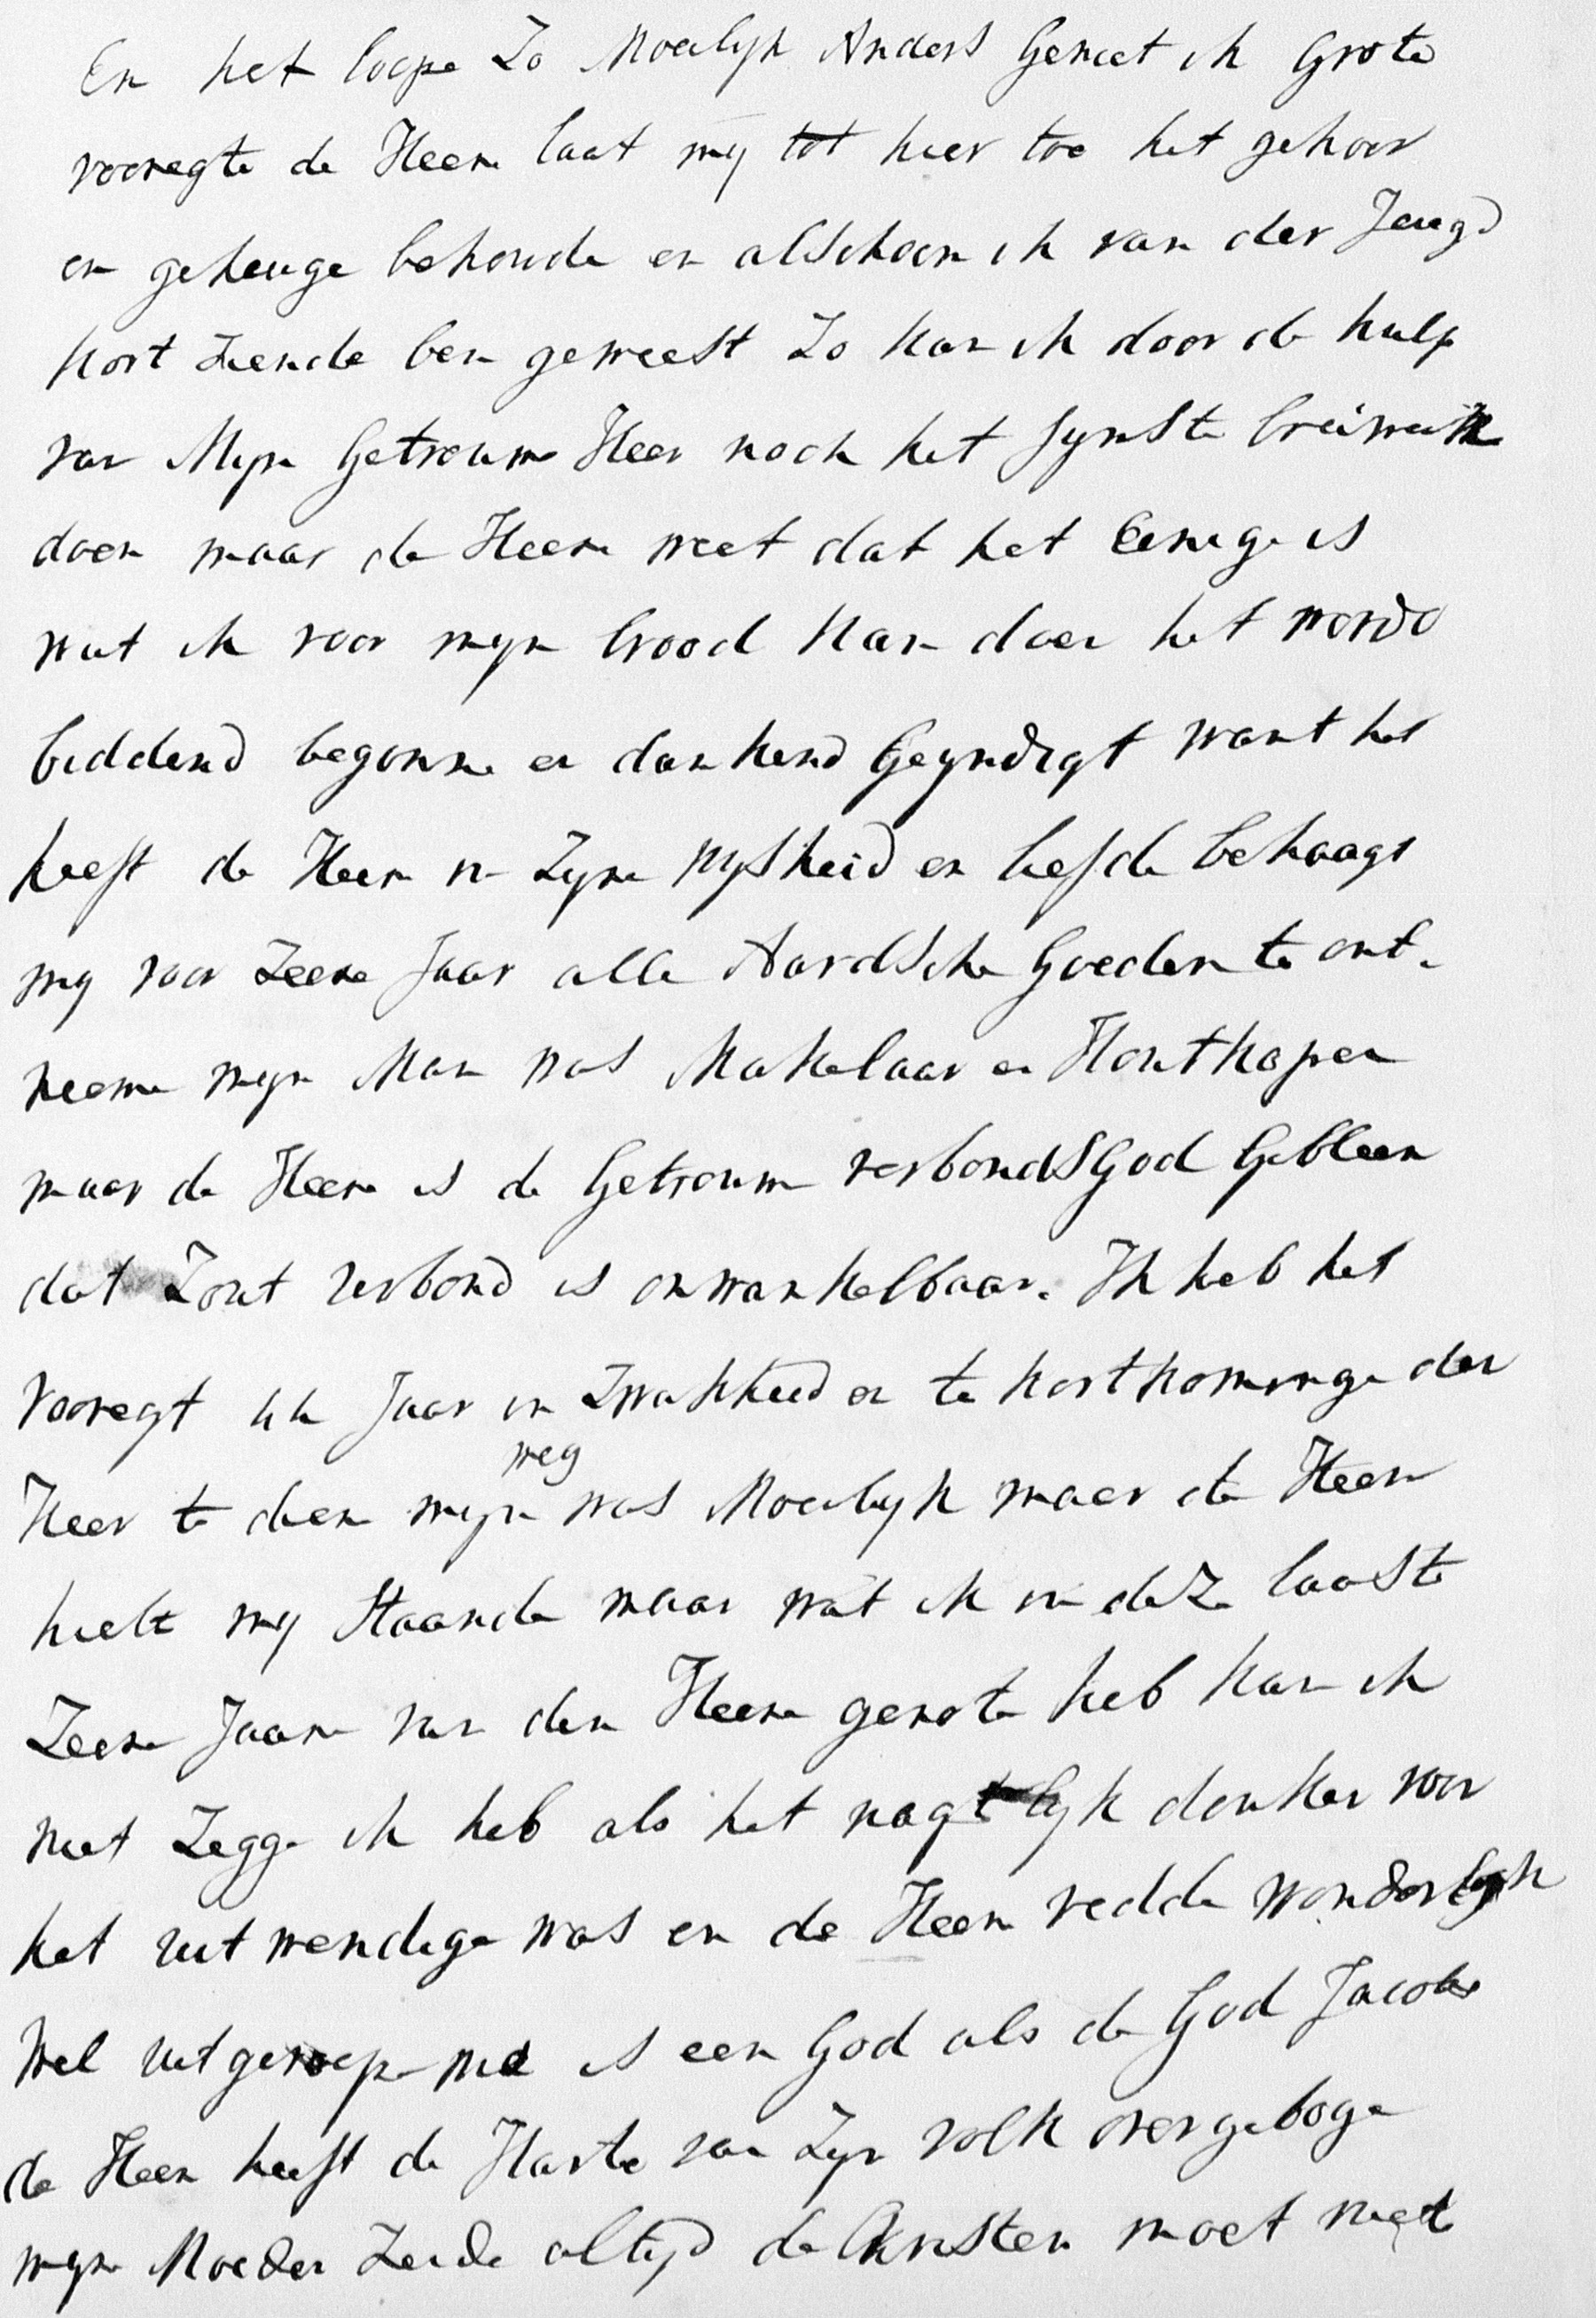 En het loope Zo Moeilyk Anders Geniet ik Grote
vooregte de Heere laat my tot hier toe het gehoor
en geheuge behoude en alschoon ik van der Jeugd
kort Ziende ben geweest Zo kan ik door de hulp
van Mijn Getrouwe Heer noch het fynste breiwerk
doen maar de Heere weet dat het Eenige is
wat ik voor myn brood kan doen het wordo
biddend begonne en dankend Geyndigt want het
heeft de Heere in Zyne wysheid en liefde behaagt
my voor Zeeve Jaar alle Aardsche Goederen te ont-
neeme myn Man was Makelaar en Houtkoper
maar de Heere is de Getrouwe verbondsGod Gebleve
dat Zout verbond is onwankelbaar. Ik heb het
Vooregt 44 Jaar in Zwakheid en te kortkominge den
Heer te dien myn weg was Moeilyk maar de Heere
hielt my Staande maar wat ik in deze laaste
Zeeve Jaare van den Heere genote heb kan ik
niet Zegge ik heb als het nagtlyk donker voor
het uitwendige was en de Heere redde wonderlyk
Wel uitgeroepe wie is een God als de God Jacobs
de Heere heeft de Harte van Zyn volk overgeboge
myn Moeder Zeide altyd de Christen moet niet